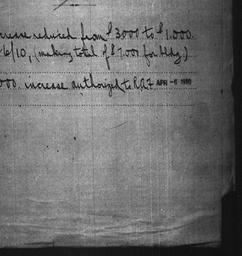 crease reduced from $3000 to $1.000.
6/10, (making total of $7.000 for bldg.)
000. increase authorized to R.R.F. APR -6 1910